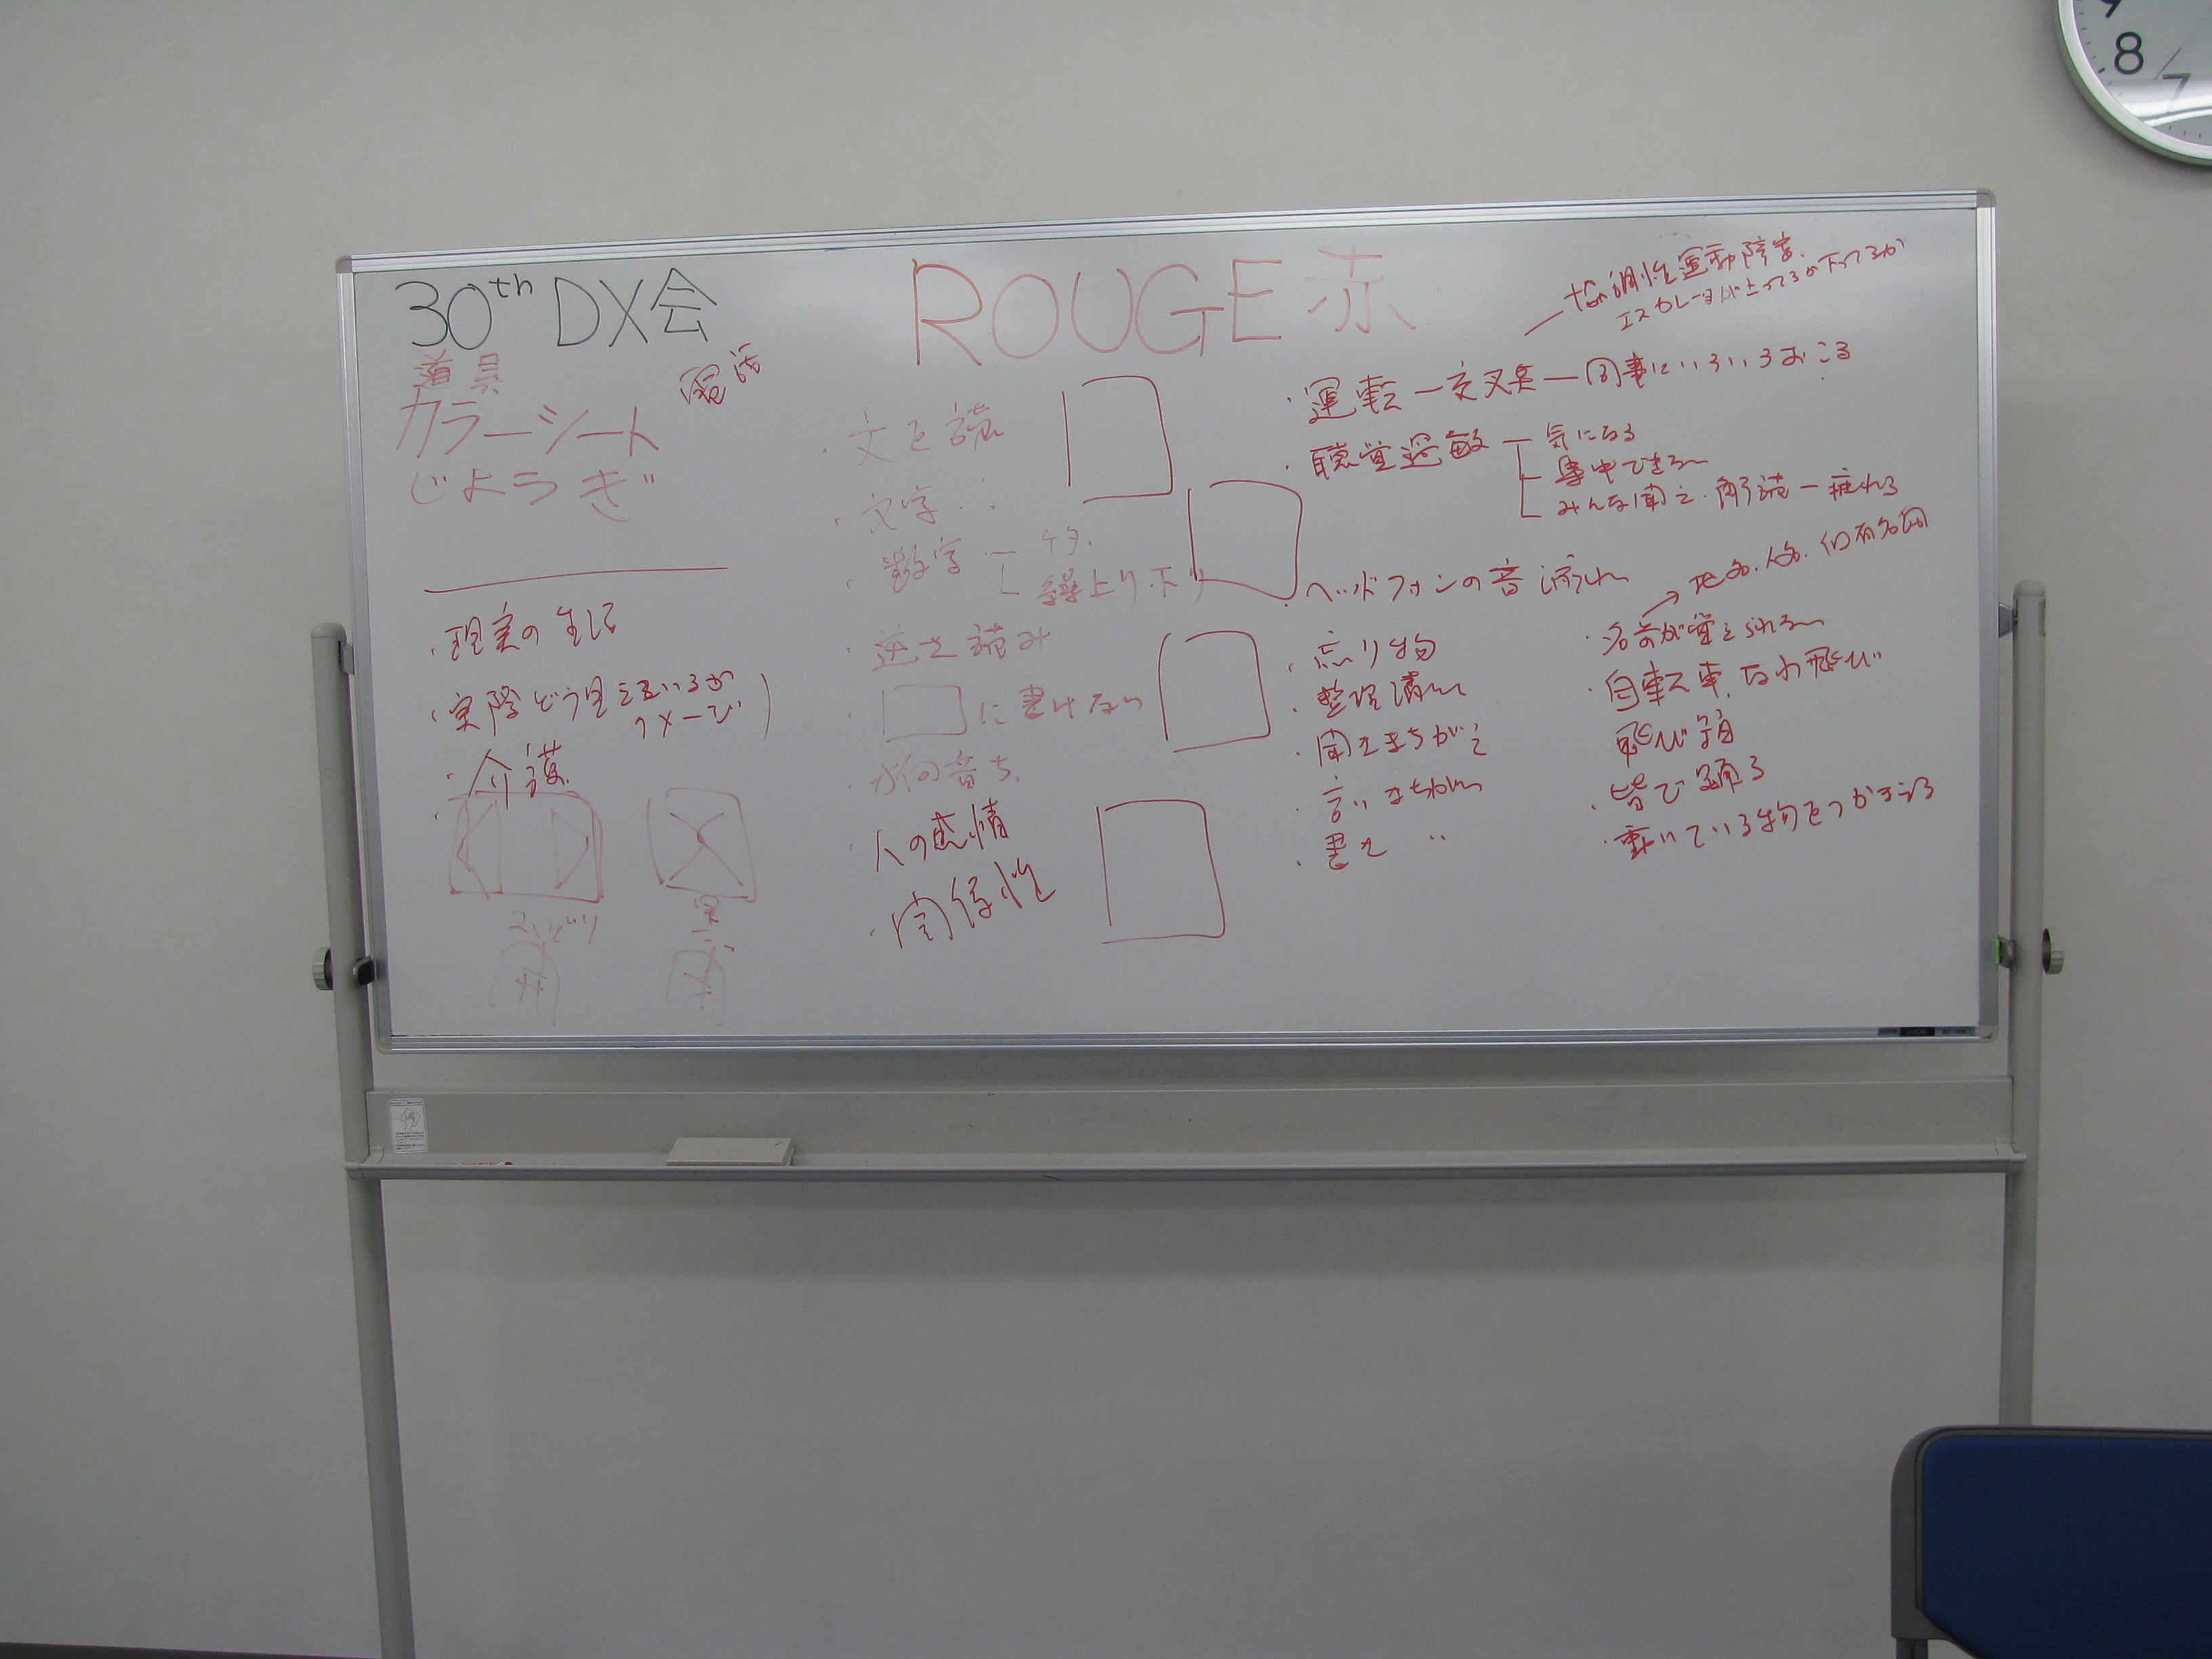 30th DX会
道具
カラーシート
じようぎ
現実の生活
実際どう見えているか
イメージ
介護
ROUGE 赤
文を読
文字
数字
ケタ
繰上り・下り
逆さ読み
に書けない
人の感情
関係性
協調性運動障害
エスカレータが上ってるか下ってるか
運転ー交叉点ー同事にいろいろおこる
聴覚過敏
気になる
集中できない
みんな聞え、解読ー疲れる
ヘッドフォンの音流れ
忘り物
整理
聞きまちがえ
言いまちがい
書き 〃
地名、人名、
名前が覚えられない
自転車、なわ飛び
飛び箱
皆で踊る
動いている物をつかまえる
9
8
7